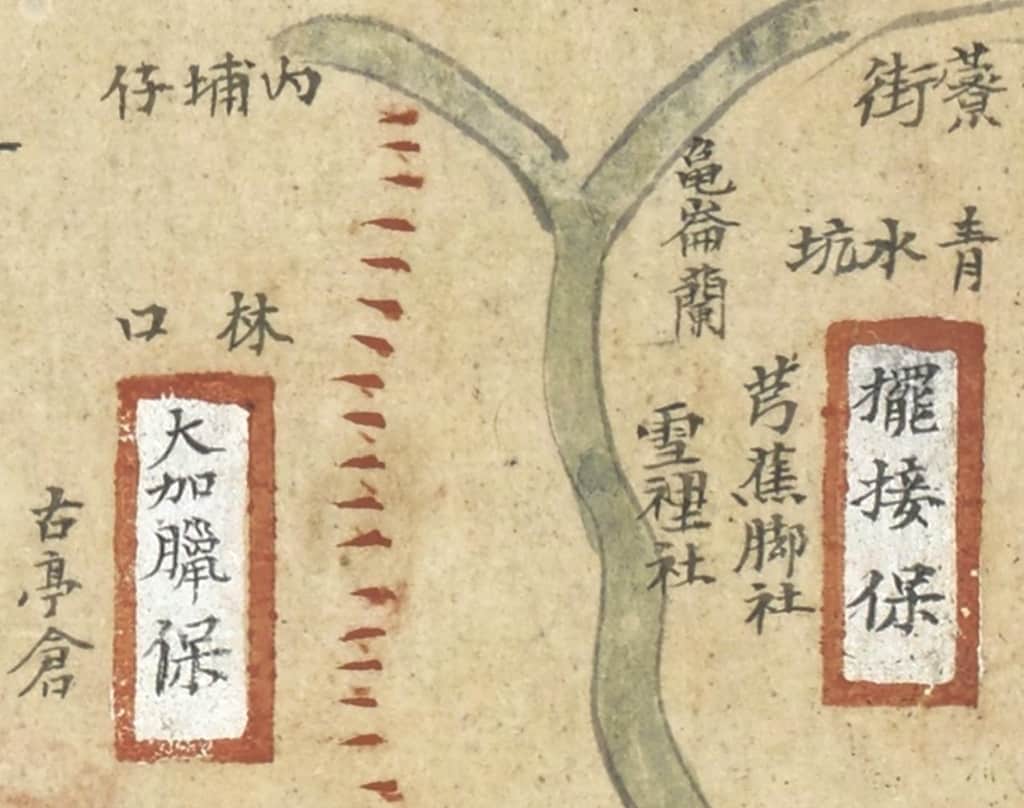 藔街
青水坑
擺接保
芎蕉脚社
亀崙蘭
雪裡社
内埔仔
林口
大加臘保
古亭倉